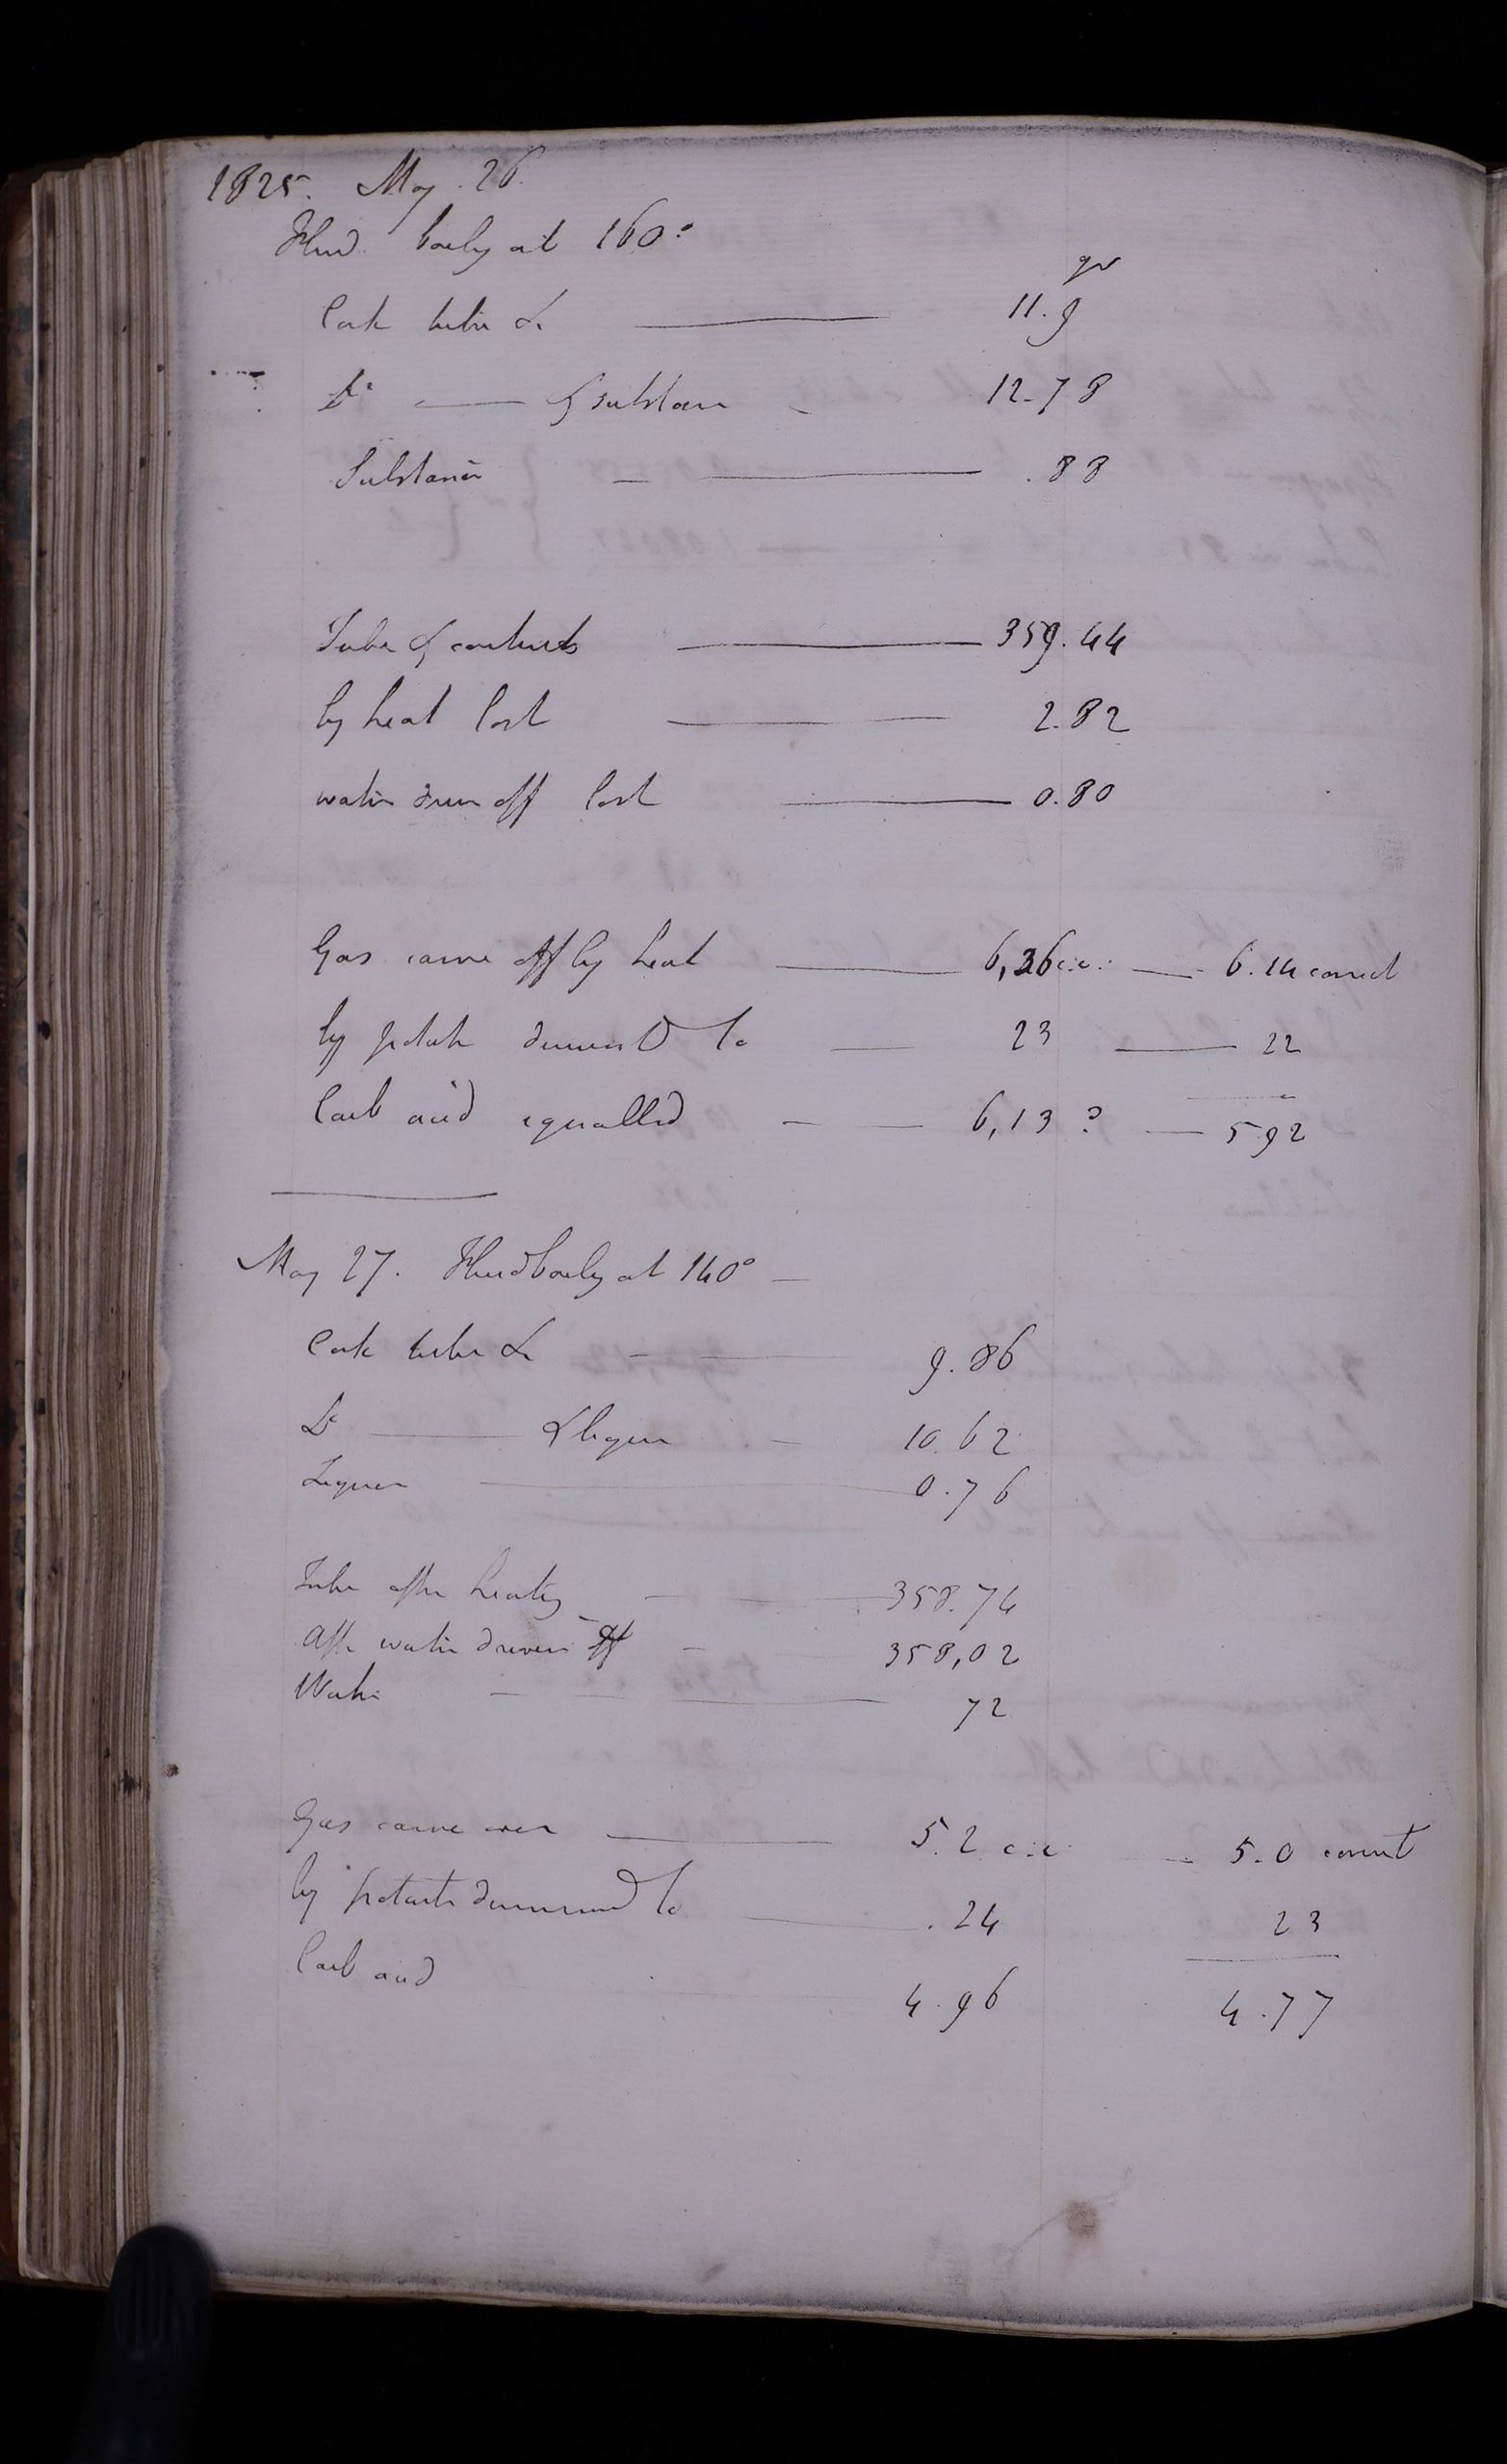 1825. May. 26.
Fluid. boilg at 160°
gr
Cork tube &c ——— 11.9
Do —— & substance - 12.78
Substance - ——— .88
Tube & contents ——— 359.44
by heat lost —— — 2.82
water driven off lost ——— 0.80
Gas came off by heat ——— 6,36 c:c: —— 6.14 correct
by potash diminishd to —— 23 —— 22
Carb acid equalled - — 6,13 ? — 5 92
May 27. Fluid boilg at 140° —
Cork tube &c - —— 9.86
Do —— & liquor - 10.62
Liquor ——— 0.76
Tube after heating - —— 358.74
After water driven off - 358,02
Water - ——— 72
Gas came over ——— 5.2 c:c: — 5.0 correct
by potash diminished to —— .24 23
Carb acid 4.96 4.77